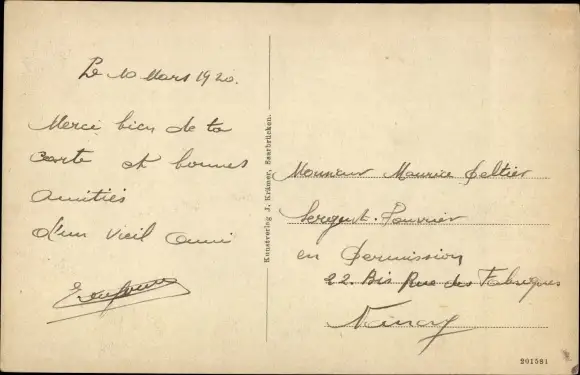 Le 10 Mars 1920.
Merci bien de ta
carte et bonnes
amitiés
d'un vieil ami
Kunstverlag J. Krämer, Saarbrücken.
Monsieur Maurice Peltier
Sergent-Fourrier
en permission
22 Bis Rue des Fabriques
Nancy
201581